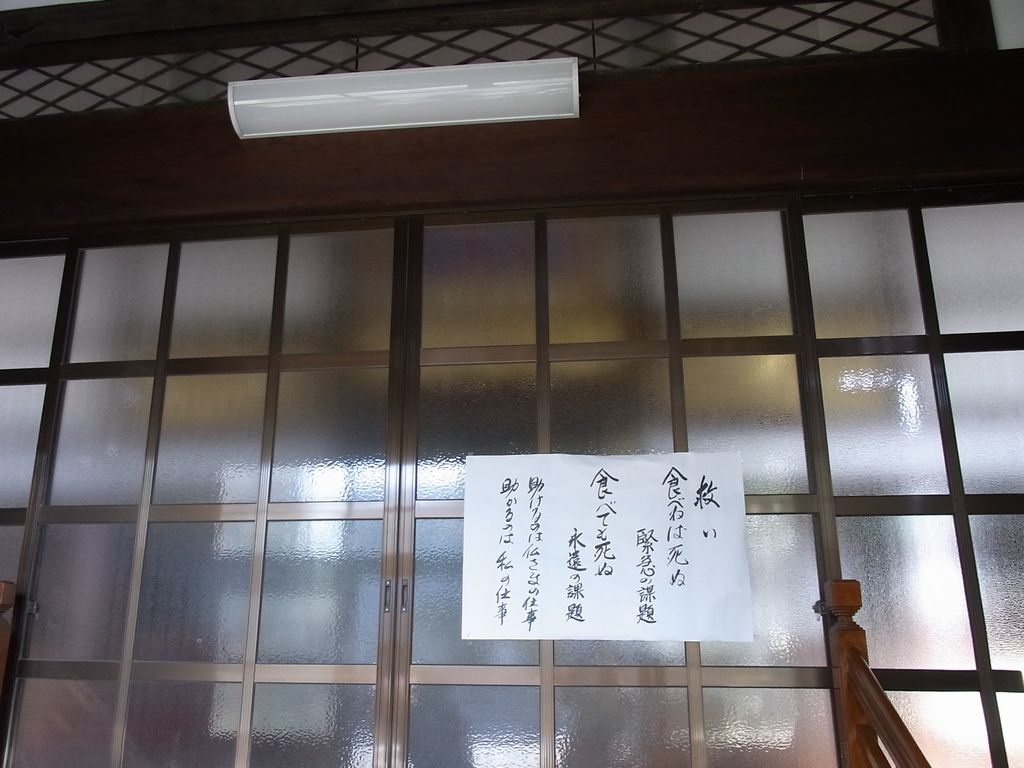 救い
食べねば死ぬ
緊急の課題
食べても死ぬ
永遠の課題
助けるのは仏さまの仕事
助かるのは私の仕事